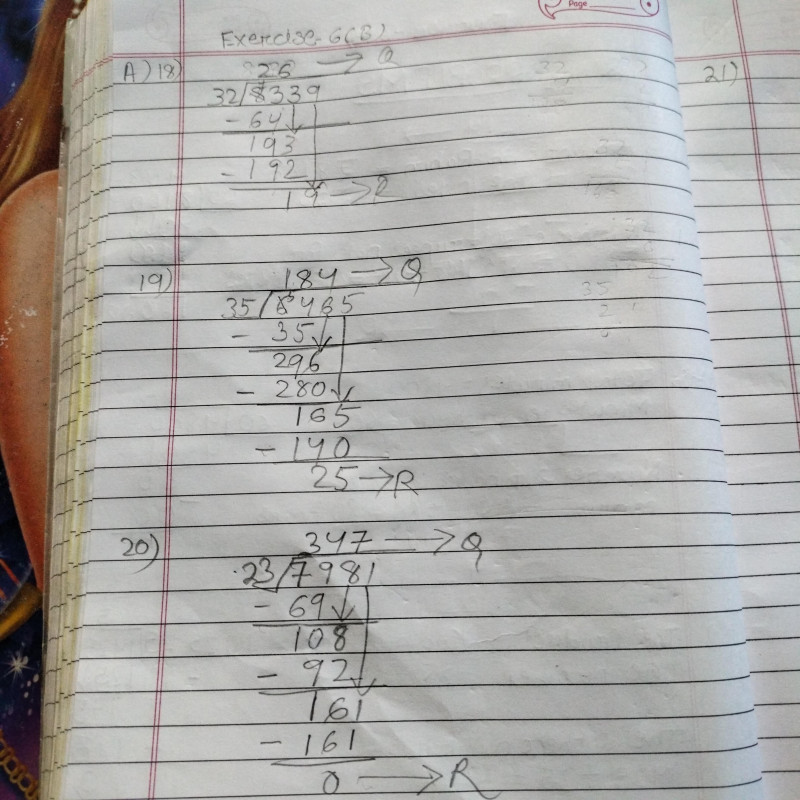 Page
Exercise-6(B)
A) 18) 26 → Q
32/8339
- 64
193
- 192
19 → R
19) 184 → Q
35/6465
- 35
296
- 280
165
- 140
25 → R
20) 347 → Q
23/7981
- 69
108
- 92
161
- 161
0 → R
21)